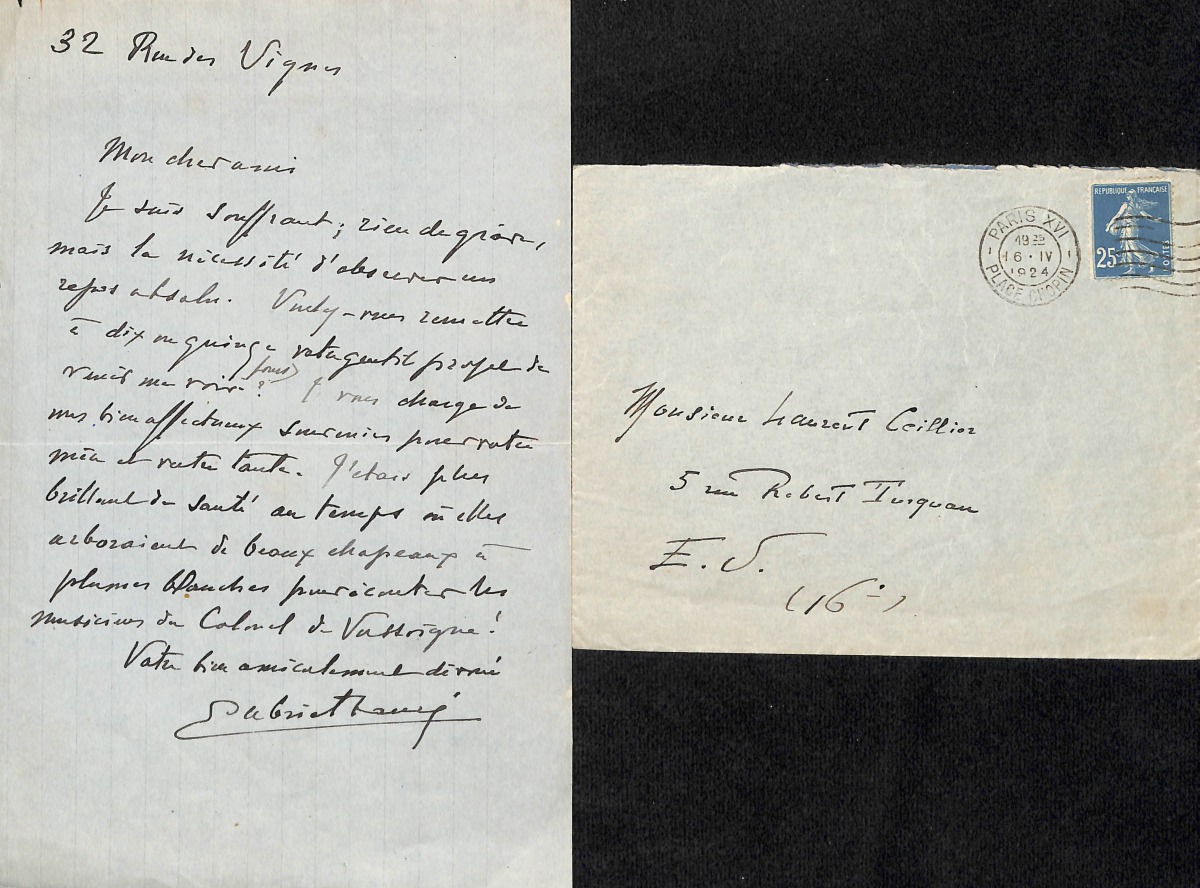 32 Rue des Vignes
Mon cher ami
Je suis souffrant ; rien de grave,
mais la nécessité d'observer un
repos absolu. Voulez-vous remettre
à dix ou quinze jours votre gentil projet de
venir me voir ? Je vous charge de
mes bien affectueux souvenirs pour votre
mère et votre tante. J'étais plus
brillant de santé au temps où elles
arboraient de beaux chapeaux à
plumes blanches pour écouter les
musiciens du Colonel de Vassoigne !
Votre bien amicalement dévoué
Gabriel Fauré
RÉPUBLIQUE FRANÇAISE
25c
POSTES
PARIS XVI
19 35
16 · IV
1924
PLACE CHOPIN
Monsieur Laurent Ceillier
5 rue Robert Turquan
E. V.
(16e)